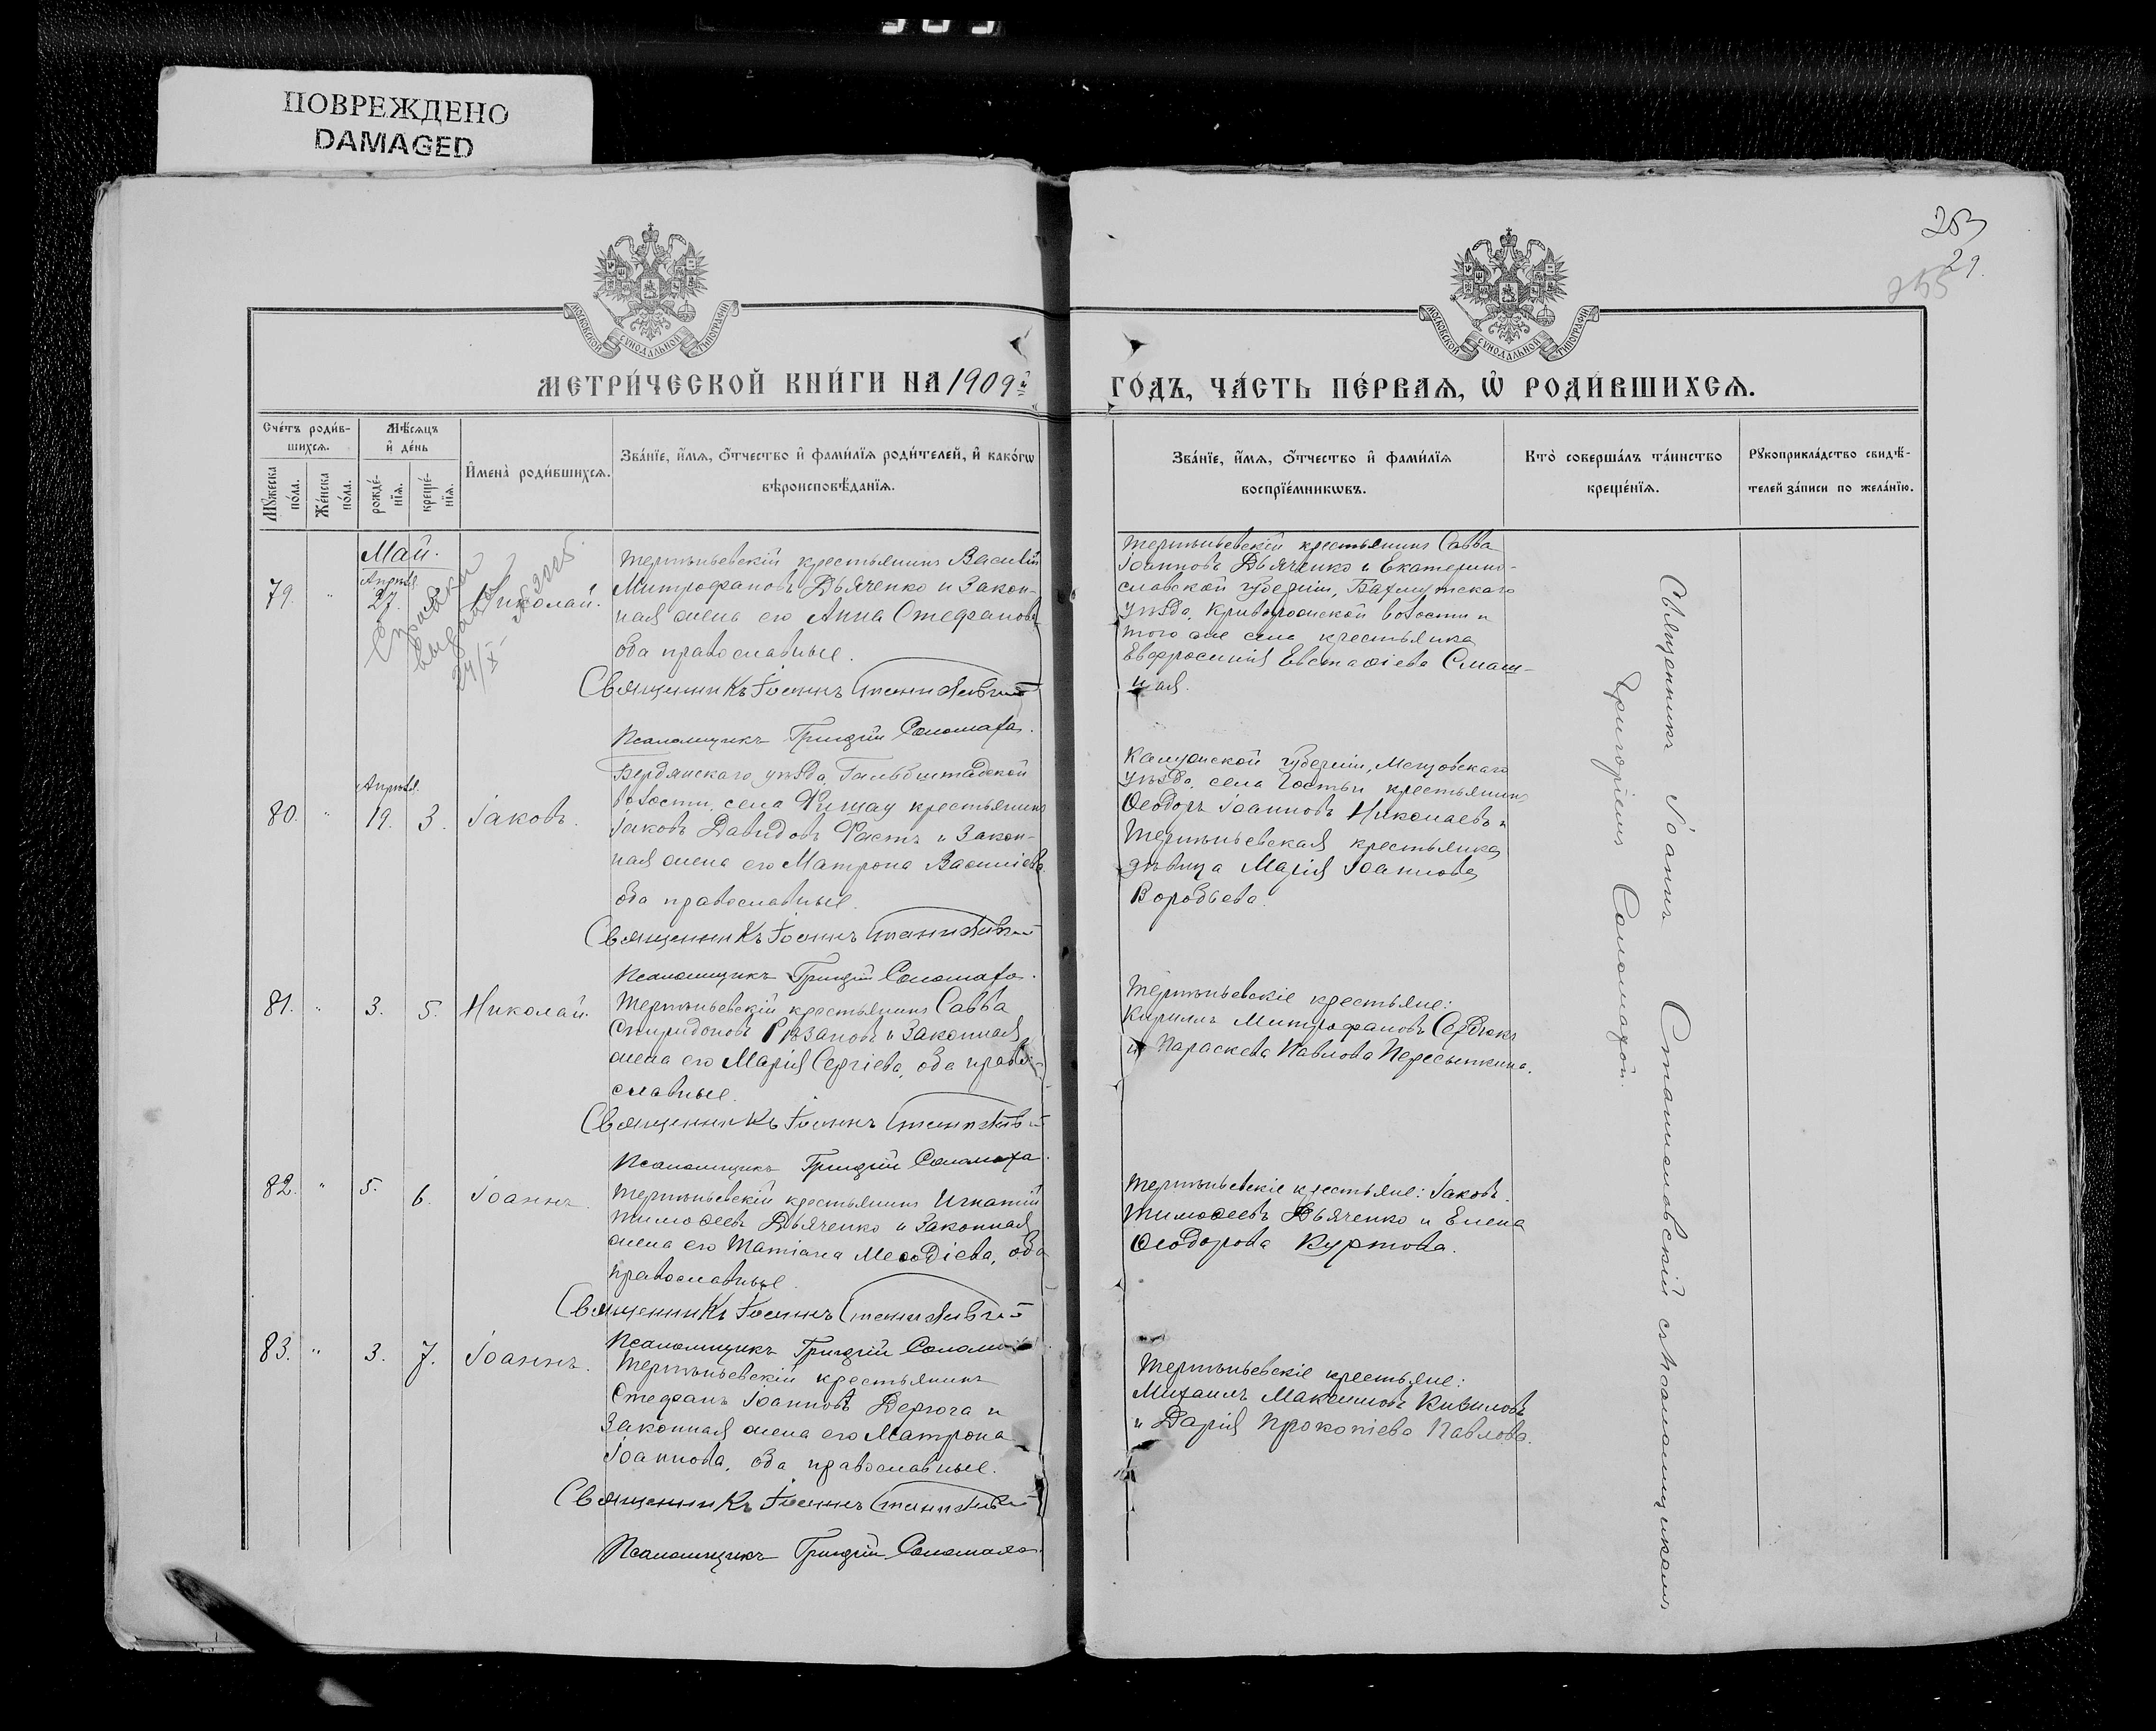 ПОВРЕЖДЕНО
DAMAGED
253
29.
255
МОСКОВСКОЙ СѴНОДАЛЬНОЙ ТИПОГРАФІИ
МОСКОВСКОЙ СѴНОДАЛЬНОЙ ТИПОГРАФІИ
МЕТРИ́ЧЕСКОЙ КНИ́ГИ НА 1909й
ГО́ДЪ, ЧА́СТЬ ПЕ́РВАѦ, Ѡ҆ РОДИ́ВШИХСѦ.
Сче́тъ роди́в-
шихсѧ.
Мꙋ́жеска по́ла.
Же́нска по́ла.
Мѣ́сѧцъ
и҆ де́нь
рожде́-
нїѧ.
креще́-
нїѧ.
И҆мена̀ роди́вшихсѧ.
Зва́нїе, и҆́мѧ, ѻ҆́тчество и҆ фами́лїѧ роди́телей, и҆ како́гѡ
вѣроисповѣ́данїѧ.
Зва́нїе, и҆́мѧ, ѻ҆́тчество и҆ фами́лїѧ
воспрїе́мникѡвъ.
Кто̀ соверша́лъ та́инство
креще́нїѧ.
Рꙋкоприкла́дство свидѣ́-
телей за́писи по жела́нїю.
Май.
79. " Апрѣл. 27. Николай.
Справка
выдана
24/X
Тертпьевскій крестьянинъ Василій
Митрофановъ Дьяченко и закон-
ная жена его Анна Стефанова
оба православные.
Священникъ Іоаннъ Станиславскій
Псаломщикъ Григорій Соломаха.
Іоанновъ Дьяченко и Екатерино-
славской губерніи, Бахмутскаго
уѣзда, Криворожской волости и
того же села крестьянка
Евфросинія Евстафіева Смаш-
ная.
80. " Апрѣл. 19. 3. Іаковъ.
Бердянскаго уѣзда, Гальбштадской
волости, села Фишау крестьянинъ
Іаковъ Давидовъ Фастъ и закон-
ная жена его Матрона Василіева
оба православные.
Священникъ Іоаннъ Станиславскій
Псаломщикъ Григорій Соломаха.
Калужской губерніи, Мещовскаго
уѣзда, села Гостьи крестьянинъ
Ѳеодоръ Іоанновъ Николаевъ и
крестьянка
дѣвица Марія Іоаннова
Воробьева.
81. " 3. 5. Николай.
крестьянинъ Савва
Спиридоновъ Рязановъ и законная
жена его Марія Сергіева, оба право-
славные.
Священникъ Іоаннъ Станиславскій
Псаломщикъ Григорій Соломаха.
крестьяне:
Кириллъ Митрофановъ Сердюкъ
и Параскева Павлова Пересыпкина.
82. " 5. 6. Іоаннъ.
крестьянинъ Игнатій
Тимоѳеевъ Дьяченко и законная
жена его Татіана Меѳодіева, оба
православные.
Священникъ Іоаннъ Станиславскій
Псаломщикъ Григорій Соломаха
крестьяне: Іаковъ
Тимоѳеевъ Дьяченко и Елена
Ѳеодорова Куртова.
83. " 3. 7. Іоаннъ.
крестьянинъ
Стефанъ Іоанновъ Дерюга и
законная жена его Матрона
Іоаннова, оба православные.
Священникъ Іоаннъ Станиславскій
Псаломщикъ Григорій Соломаха.
крестьяне:
Михаилъ Максимовъ Кивиловъ
и Дарія Прокопіева Павлова.
Священникъ Іоаннъ Станиславскій съ псаломщикомъ
Григоріемъ Соломахой.